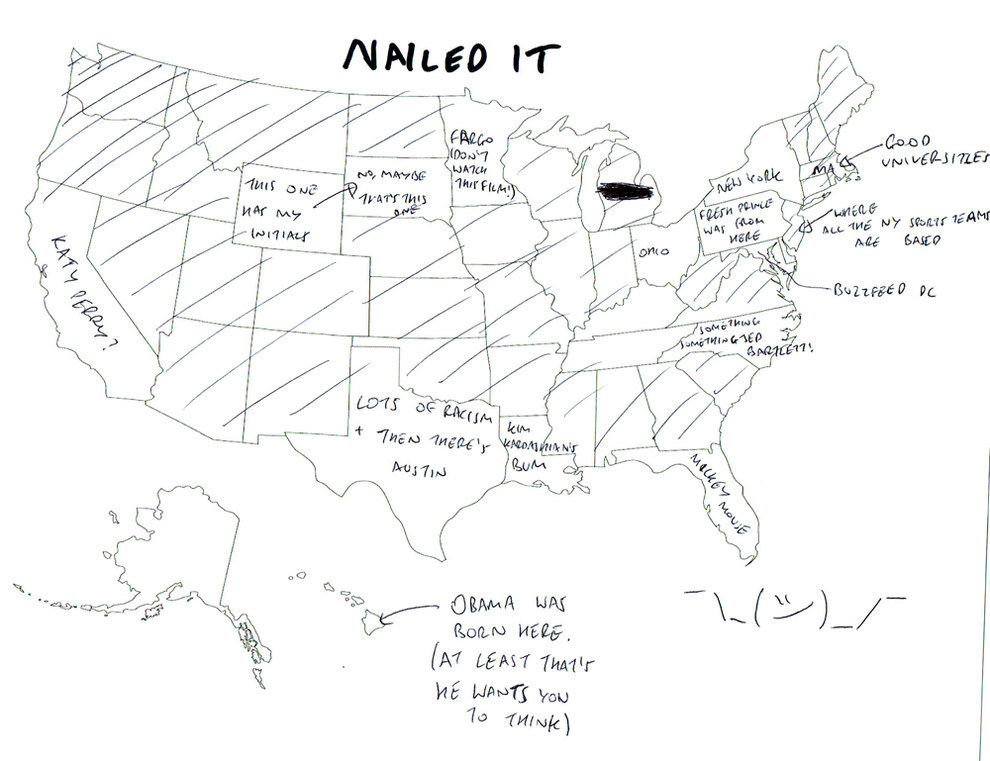 NAILED IT
FARGO
(DON'T
WATCH
THIS FILM!)
GOOD
UNIVERSITIES
MA
NEW YORK
THIS ONE
HAS MY
INITIALS
NO, MAYBE
THAT'S THIS
ONE
FRESH PRINCE
WAS FROM
HERE
WHERE
ALL THE NY SPORTS TEAMS
ARE BASED
OHIO
KATY PERRY?
BUZZFEED DC
SOMETHING
SOMETHING JED
BARTLETT!
LOTS OF RACISM
+ THEN THERE'S
AUSTIN
KIM
KARDASHIAN'S
BUM
MICKEY MOUSE
OBAMA WAS
BORN HERE.
(AT LEAST THAT'S
HE WANTS YOU
TO THINK)
¯\_(ツ)_/¯